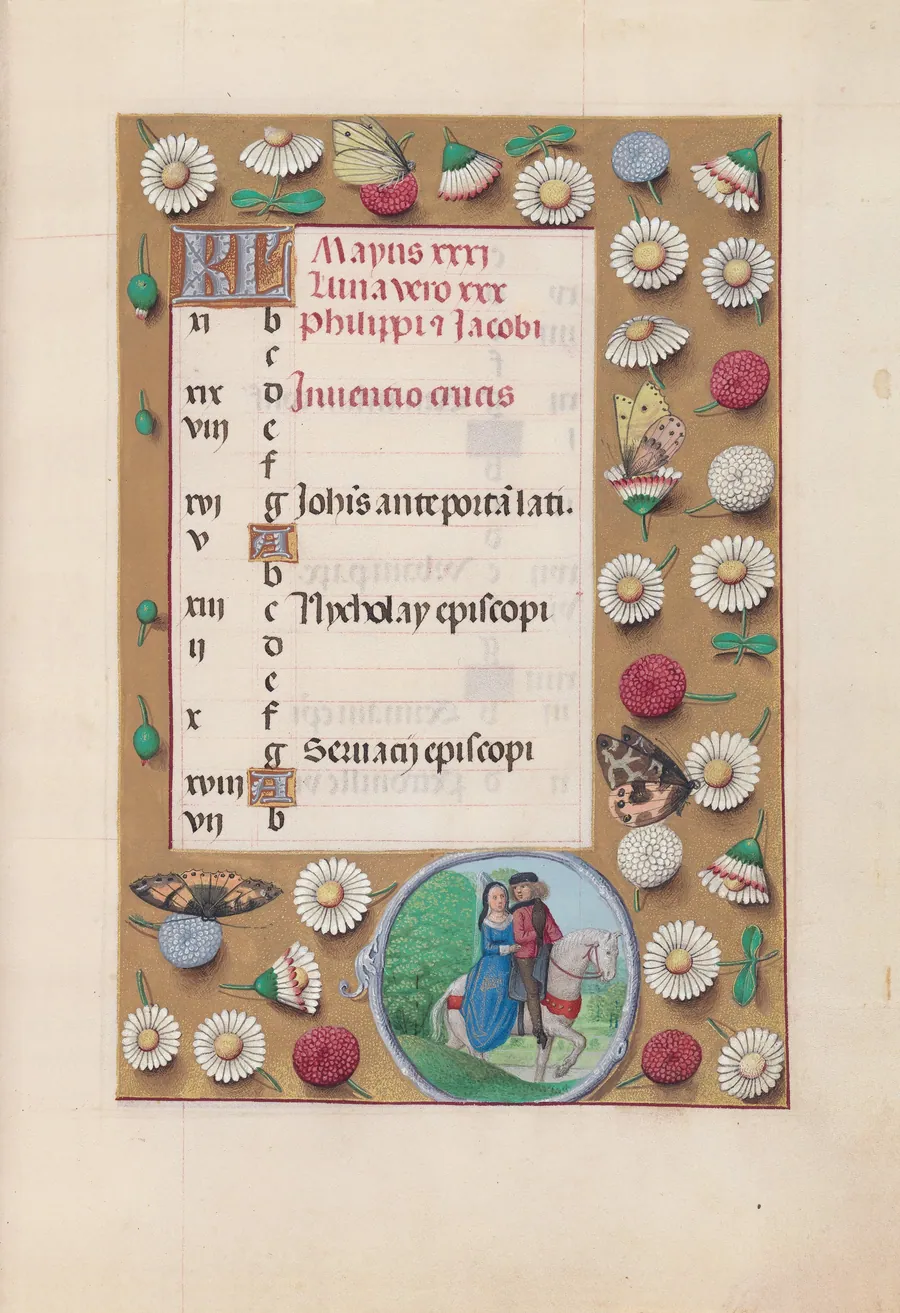 KL Mayus xxxj
Luna vero xxx
xj b Philippi ⁊ Jacobi
c
xix d Inuentio crucis
viij e
f
xvj g Joh̄is ante portā lati.
v A
b
xiij c Nycholay episcopi
ij d
e
x f
g Seruacij episcopi
xviij A
vij b